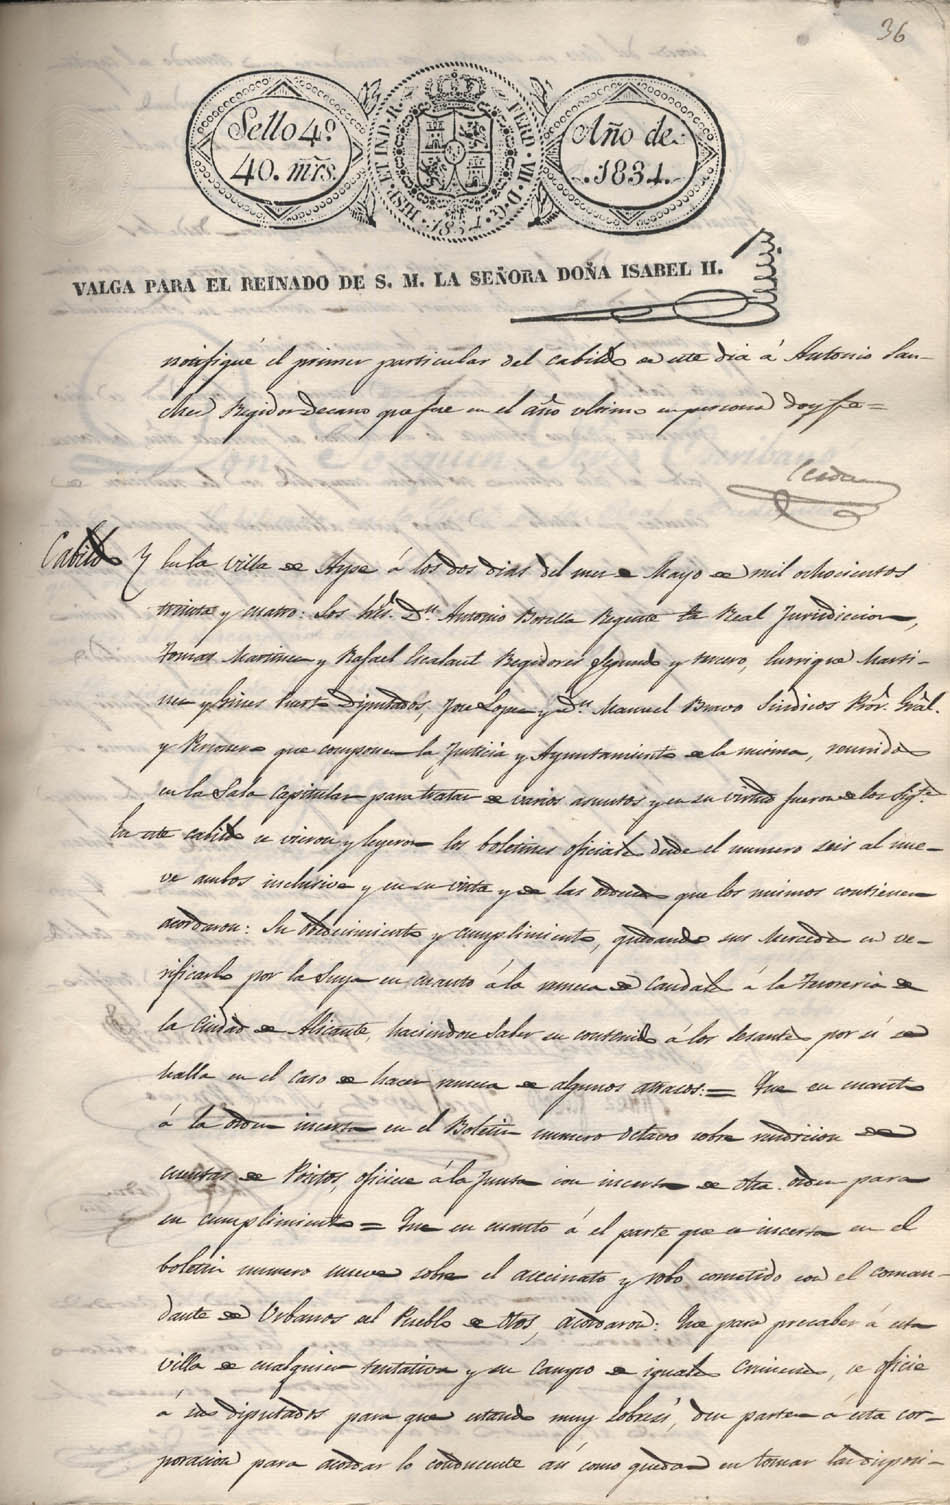 36
Sello 4º
40. mrs.
HISP. ET IND. R. FERD. VII. D. G.
1834
Año de
1834.
VALGA PARA EL REINADO DE S. M. LA SEÑORA DOÑA ISABEL II.
notifiqué el primer particular del Cabildo de este dia á Antonio San-
chez Regidor decano que fue en el año ultimo en persona doy fe=
Cerdan
Cabildo Y En la Villa de Aspe á los dos dias del mes de Mayo de mil ochocientos
treinta y cuatro: Los Sres. Dn. Antonio Botella Regente la Real Jurisdiccion,
Tomas Martinez y Rafael Regidores segundo y tercero, Enrrique Marti-
nez y Gines Puerto Diputados, Jose Lopez y Dn. Manuel Bravo Sindicos Pror. Gral.
y Personero que componen la Justicia y Ayuntamiento de la misma, reunidos
en la Sala Capitular para tratar de varios asuntos y en su virtud fueron de los Sigtes.
En este cabildo se vieron y leyeron los boletines oficiales desde el numero seis al nue-
ve ambos inclusive y en su vista y de las ordenes que los mismos contienen
acordaron: Su obedecimiento y cumplimiento, quedando sus Mercedes en ve-
rificarlo por la Suya en cuanto á la remesa de Caudales á la Tesoreria de
la Ciudad de Alicante, haciendose Saber su contenido á los Cesantes por si se
halla en el caso de hacer remesa de algunos atrasos:= Que en cuanto
á la orden incerta en el Boletin numero octavo sobre rendicion de
cuentas de Positos, oficiese á la Junta con incerta de dha. orden para
su cumplimiento= Que en cuanto á el parte que se incerta en el
boletin numero nueve sobre el asecinato y robo cometido con el coman-
dante de Urbanos del Pueblo de Otos, acordaron: Que para precaber á esta
villa de cualquier tentativa y su campo de iguales crimenes, se oficie
á sus diputados para que estando muy sobre si, den parte á esta cor-
poracion para acordar lo conducente asi como quedan en tomar las disposi-